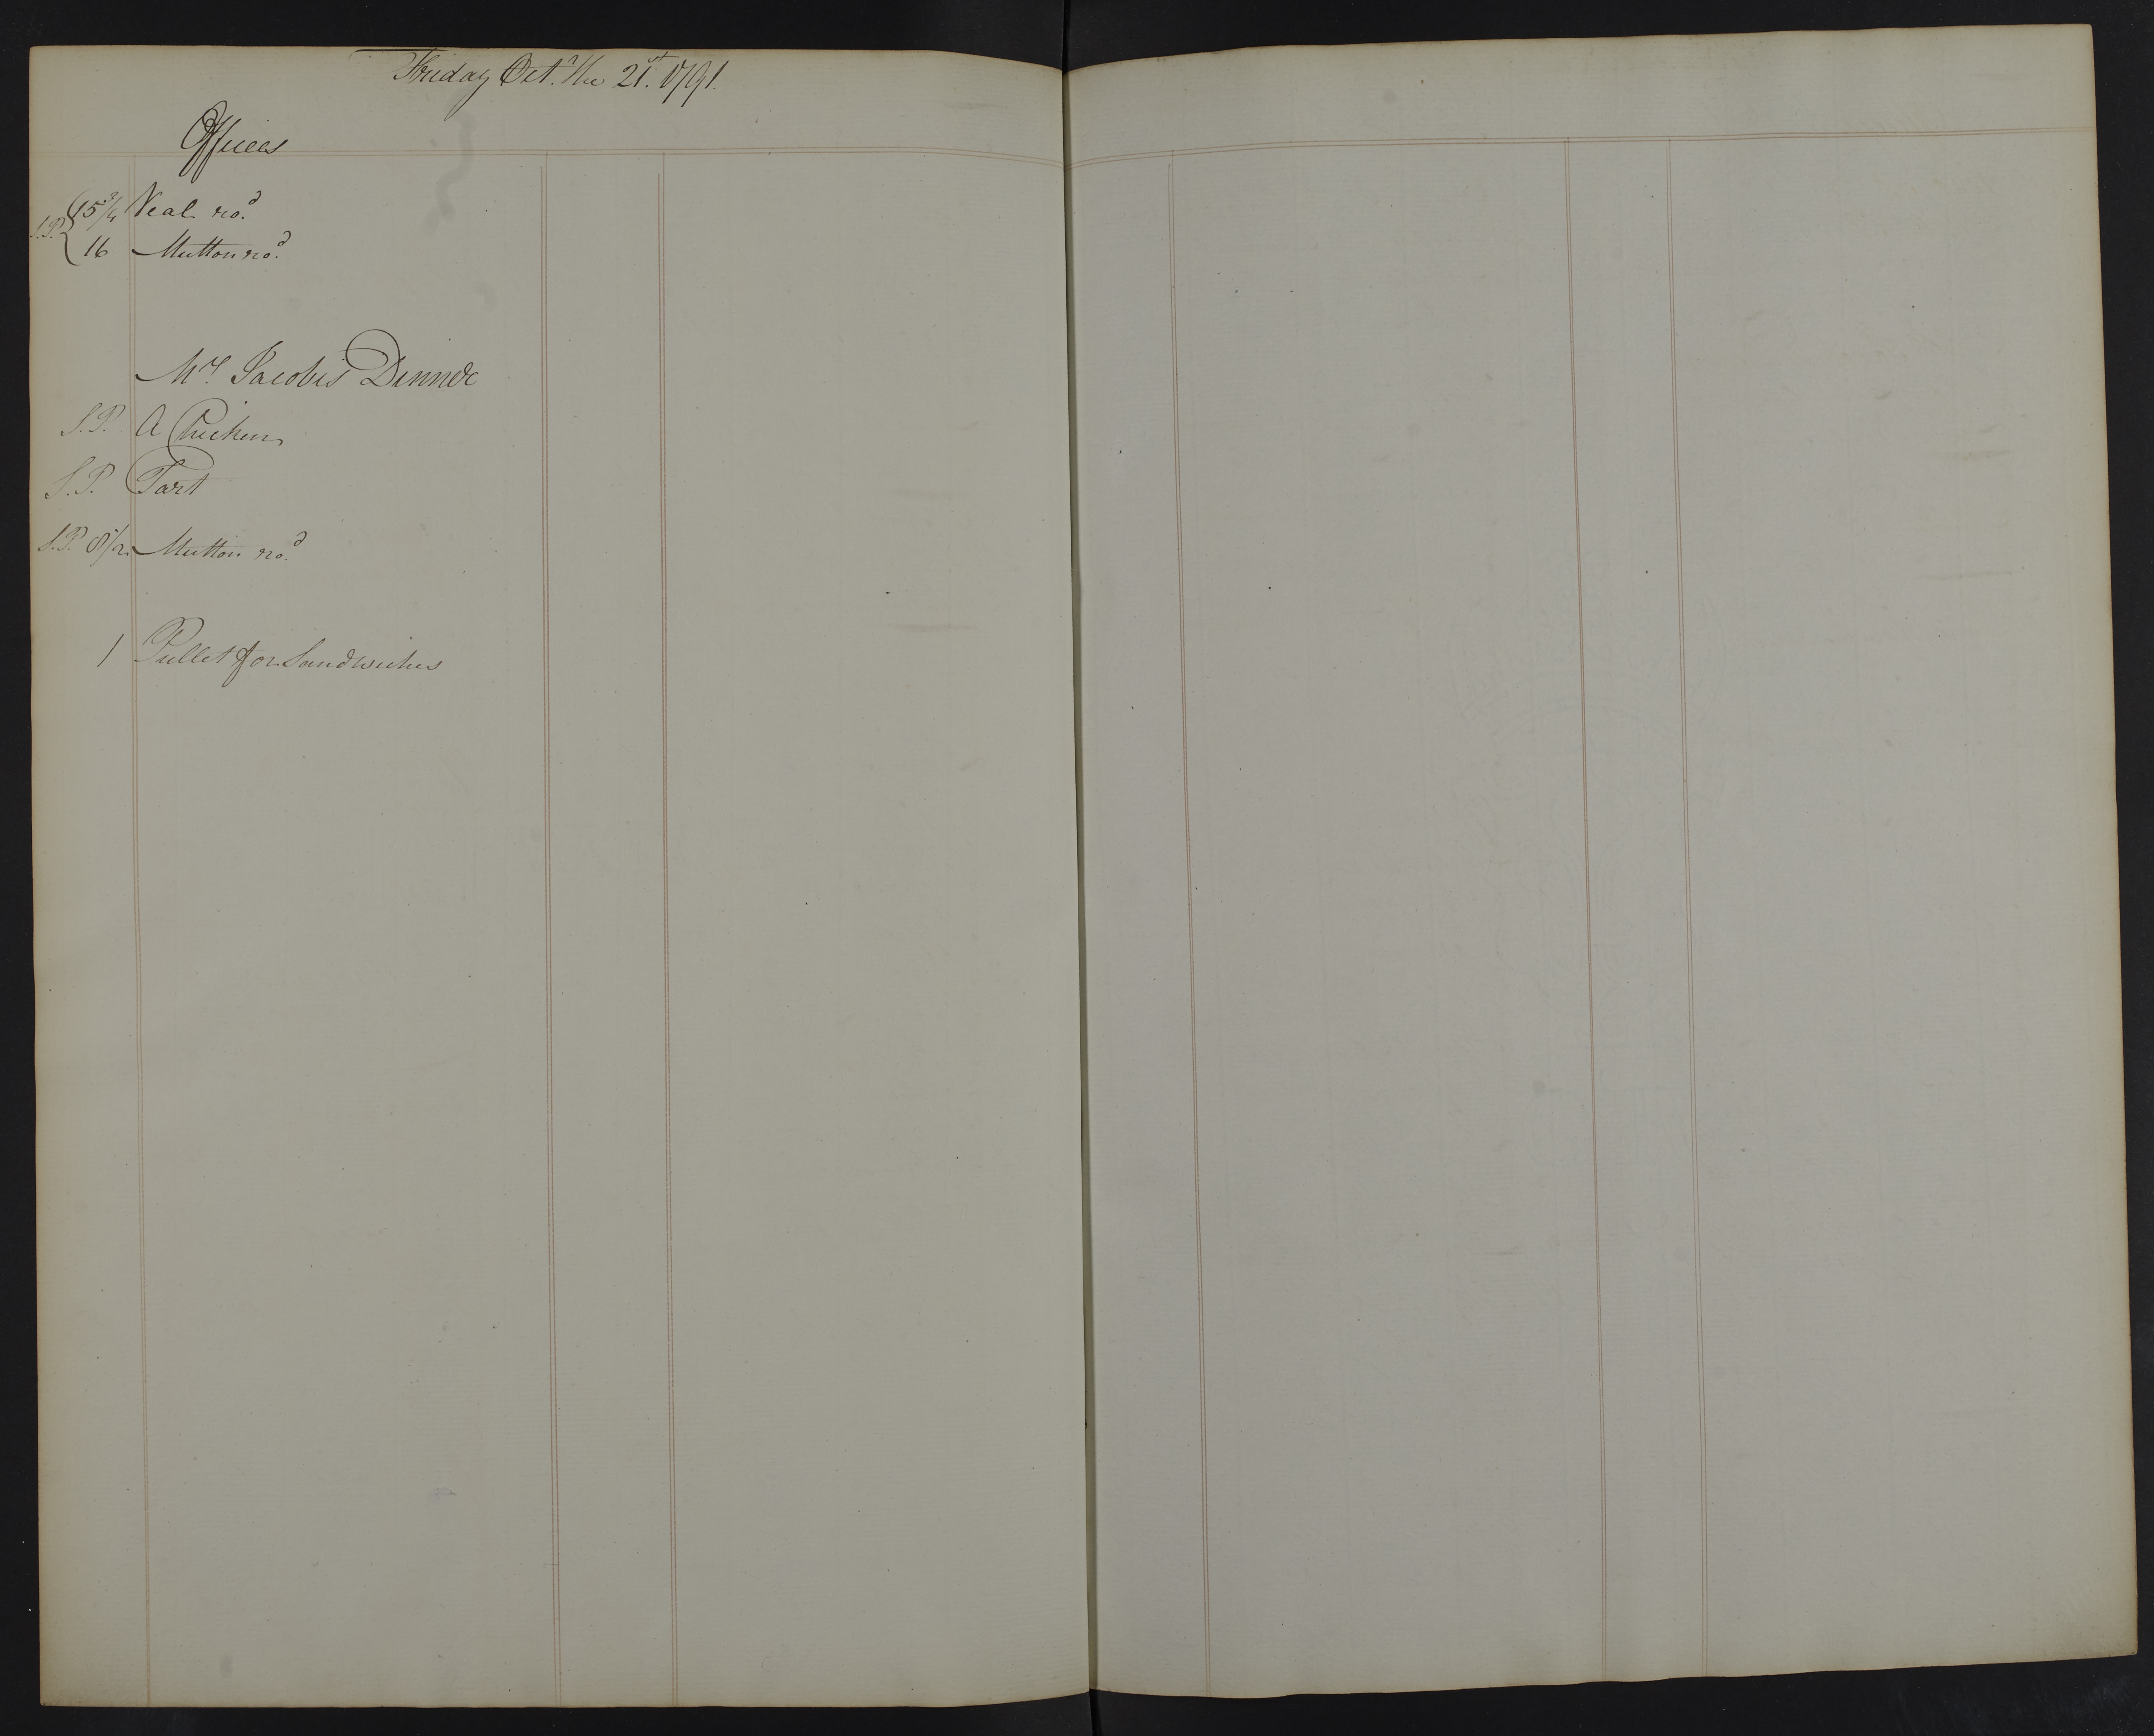 Friday Oct.r the 21.st 1791.
Offices
S.P. { 15 3/4 Veal ro.d
16 Mutton ro.d
Mrs. Jacobis Dinner
S.P. A Chicken
S.P. Tart
S.P. 8 1/2 Mutton ro.d
1 Pullet for Sandwiches